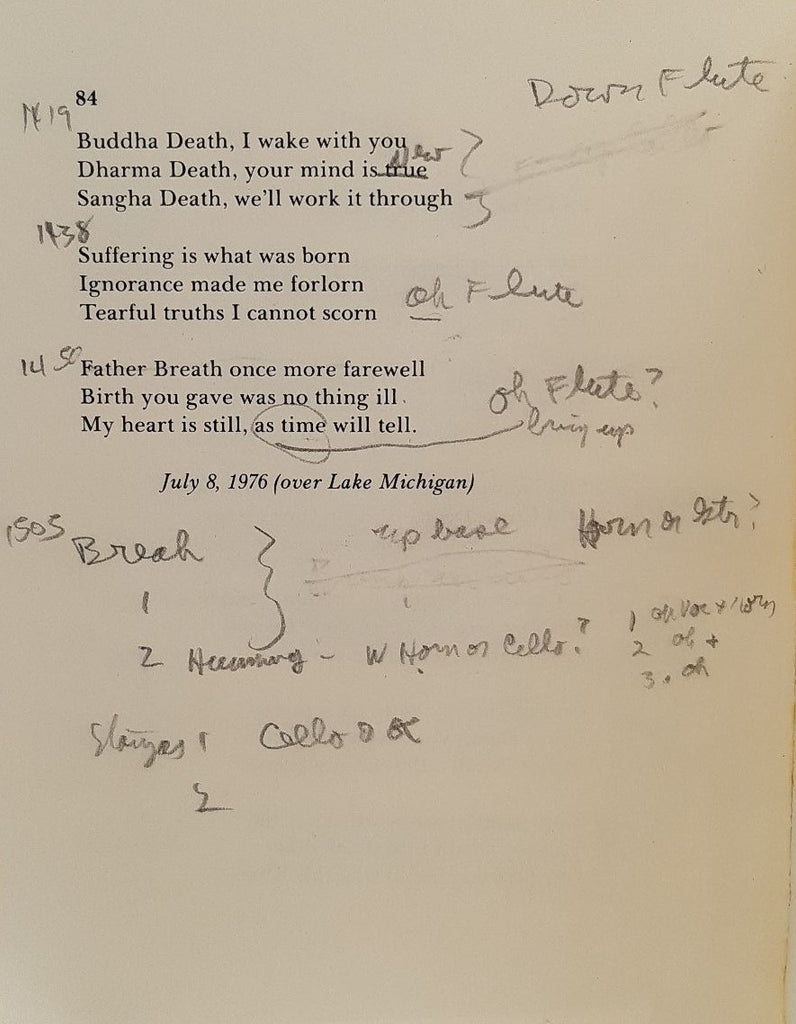 Down Flute
84
1419
Buddha Death, I wake with you
New
Dharma Death, your mind is true
Sangha Death, we'll work it through
1438
Suffering is what was born
Ignorance made me forlorn
Tearful truths I cannot scorn
oh Flute
1450
Father Breath once more farewell
Birth you gave was no thing ill.
My heart is still, as time will tell.
oh Flute?
bring up
July 8, 1976 (over Lake Michigan)
1505 Break up base Horn or Gtr?
1
2 Humming - W Horn or Cello?
1 oh
2 oh +
3. oh
1 Cello
2